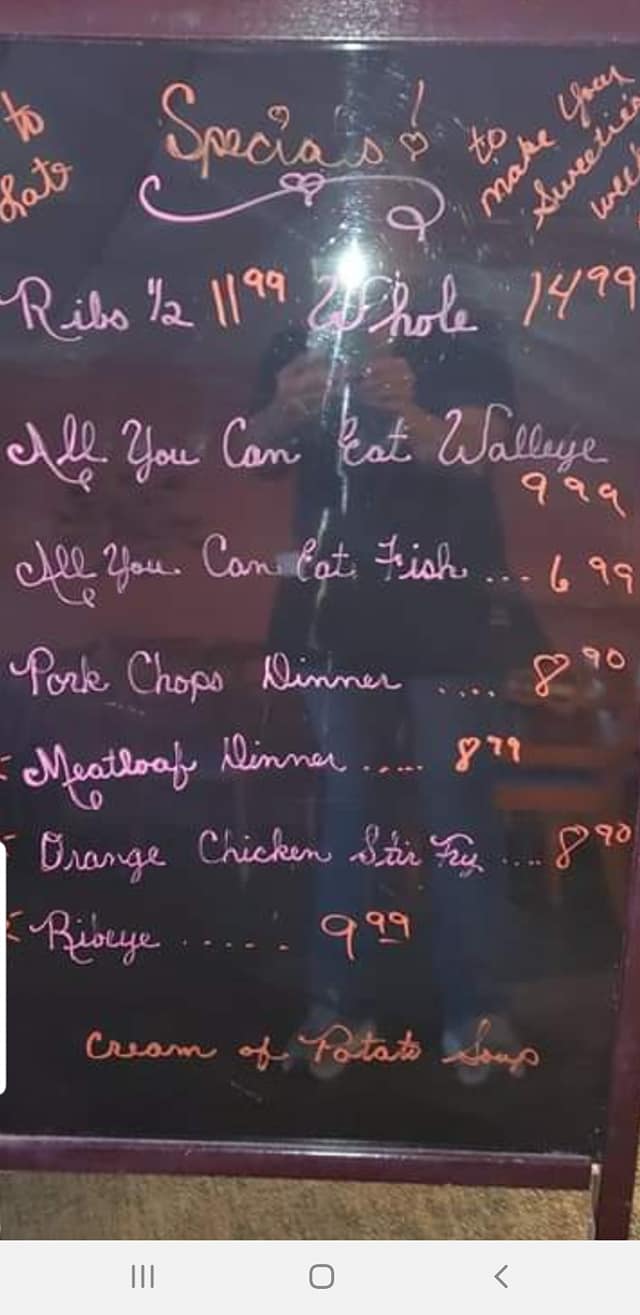 Specials!
to
Date
to
make your
Sweeties
week
Ribs 1/2 11.99 Whole 14.99
All You Can Eat Walleye
9 99
All You Can Eat Fish ... 6 99
Pork Chops Dinner .... 8 90
Meatloaf Dinner ..... 8 79
Orange Chicken Stir Fry .... 8 90
Ribeye ...... 9 99
Cream of Potato Soup